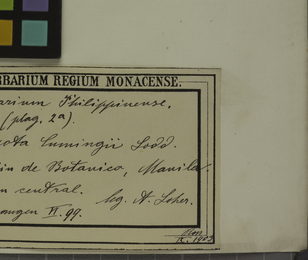 RBARIUM REGIUM MONACENSE.
arium Philippinense.
(plag. 2a).
ota Cumingii
in de Botanico, Manila.
n central.
leg. A. Loher.
VI. 99.
1903